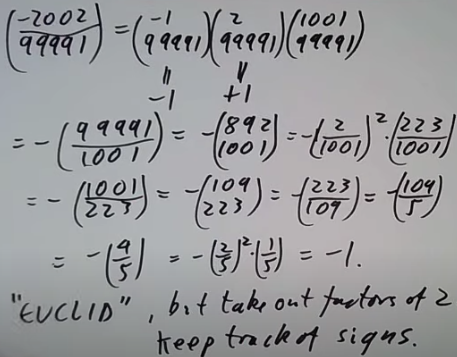 (-2002/99991) = (-1/99991)(2/99991)(1001/99991)
= =
-1 +1
= -(99991/1001) = -(892/1001) = -(2/1001)²·(223/1001)
= -(1001/223) = -(109/223) = -(223/109) = -(109/5)
= -(4/5) = -(2/5)²·(1/5) = -1.
"EUCLID", but take out factors of 2
keep track of signs.